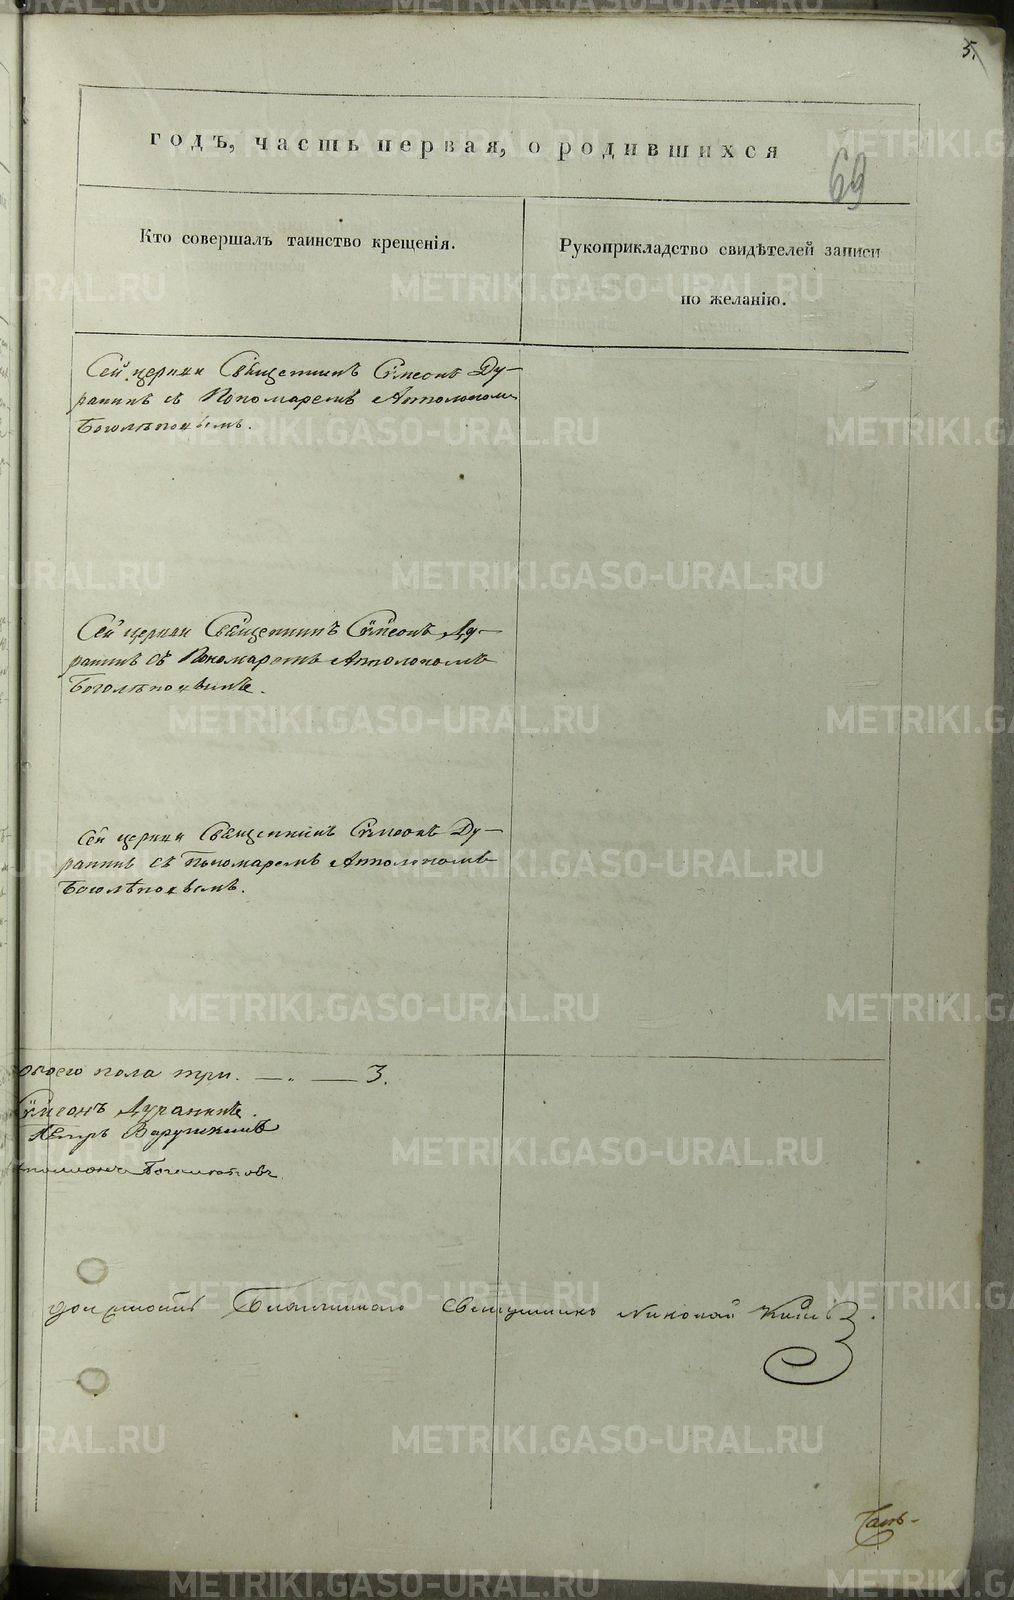 5.
годъ, часть первая, о родившихся
69
Кто совершалъ таинство крещенія.
Рукоприкладство свидѣтелей записи
по желанію.
Сей церкви Священникъ Сѵмеонъ Ду-
ранинъ съ Пономаремъ Апполоном
Боголѣповымъ.
Сей церкви Священникъ Сѵмеонъ Ду-
ранинъ съ Пономаремъ Апполономъ
Боголѣповымъ.
Сей церкви Священникъ Сѵмеонъ Ду-
ранинъ съ Пономаремъ Апполономъ
Боголѣповымъ.
обоего пола три. — „ — 3.
Сѵмеонъ Дуранинъ.
Петръ
Боголѣповъ.
должность Благочиннаго Священникъ Николай
METRIKI.GASO-URAL.RU